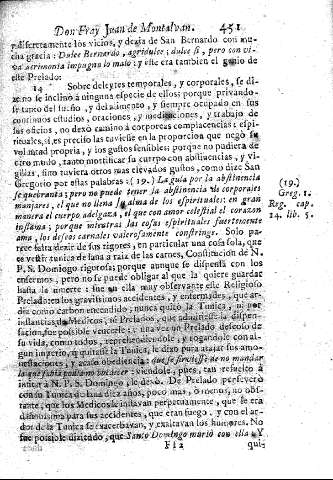 Don Fray Juan de Montalvan. 451
discretamente los vicios, y dezia de San Bernardo con mu-
cha gracia: Dulce Bernardo, agridulce; dulce si, pero con vi-
acrimonia impugna lo malo: y este era tambien el genio de
este Prelado:
14 Sobre deleytes temporales, y corporales, se di-
ze, no se inclinò à ninguna especie de ellos: porque privando-
se tanto del sueño, y del alimento, y siempre ocupado en sus
continuos estudios, oraciones, y meditaciones, y trabajo de
sus oficios, no dexò camino à corporeas complacencias: espi-
rituales, si, es preciso las tuviesse en la proporcion que negò su
voluntad propria, y los gustos sensibles: porque no pudiera de
otro modo, tanto mortificar su cuerpo con abstinencias, y vi-
gilias, sino tuviera otros mas elevados gustos, como dize San
Gregorio por estas palabras: (19.) La guia por la abstinencia
se quebranta; pero no puede tener la abstinencia de corporales
manjares, el que no llena su alma de los espirituales: en gran
manera el cuerpo adelgaza, el que con amor celestial el corazon
inflama; porque mientras las cosas espirituales fuertemente
ama, los deseos carnales valerosamente constringe. Solo pa-
rece falta dezir de sus rigores, en particular una cosa sola, que
es vestir tunica de lana à raiz de las carnes, Constitucion de N.
P. S. Domingo rigorosa; porque aunque se dispensa con los
enfermos, pero no se puede obligar al que la quiere guardar
hasta la muerte: fue en ella muy observante este Religioso
Prelado: en los gravissimos accidentes, y enfermedades, que ar-
diz como carbon encendido; nunca quitò la Tunica, ni por
instancias de Medicos, ni Prelados, que admitiesse la dispen-
sacion, fue possible vencerle: una vez un Prelado deseoso de
su vida, como todos, reprehendiendole, y rogandole con al-
gun imperio, se quitasse la Tunica, le dixo para atajar sus amo-
nestaciones, y acaso obediencia: que se sirviesse de no mandar
lo que sabia podia no suceder: viendole, pues, tan resuelto à
imitar à N. P. S. Domingo, le dexò. De Prelado perseverò
con su Tunica de lana diez años, poco mas, ò menos, no obs-
tante, que los Medicos le instavan perpetuamente, que le era
dañosissima para sus accidentes, que eran fuego, y con el ar-
dor de la Tunica se exacerbavan, y exaltavan los humores. No
fue possible dizirado, que Santo Domingo muriò con ella. Y
Fl 2 quis-
(19.)
Greg. 1.
Reg. cap.
14. lib. 5.